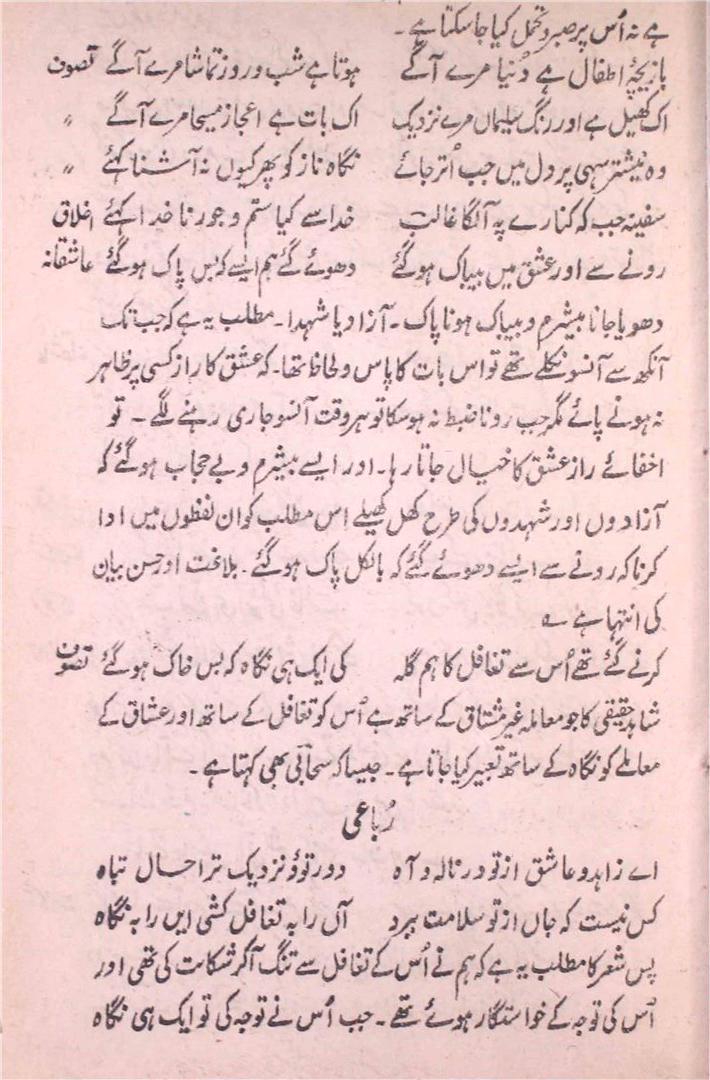 ہے نہ اُس پر صبر و تحمل کیا جا سکتا ہے۔
بازیچۂ اطفال ہے دُنیا مرے آگے ہوتا ہے شب و روز تماشا مرے آگے تصوف
اک کھیل ہے اورنگ سلیماں مرے نزدیک اک بات ہے اعجاز مسیحا مرے آگے "
وہ نیشتر سہی پر دل میں جب اُتر جائے نگاہ ناز کو پھر کیوں نہ آشنا کہئے "
سفینہ جب کہ کنارے پہ آلگا غالب خدا سے کیا ستم و جور ناخدا کہئے اخلاق
رونے سے اور عشق میں بیباک ہو گئے دھوئے گئے ہم ایسے کہ بس پاک ہو گئے عاشقانہ
دھویا جانا بیشرم و بیباک ہونا پاک۔ آزاد یا شہدا۔ مطلب یہ ہے کہ جب تک
آنکھ سے آنسو نکلے تھے تو اس بات کا پاس و لحاظ تھا۔ کہ عشق کا راز کسی پر ظاہر
نہ ہونے پائے مگر جب رونا ضبط نہ ہو سکا تو ہر وقت آنسو جاری رہنے لگے۔ تو
اخفائے راز عشق کا خیال جاتا رہا۔ اور ایسے بیشرم و بے حجاب ہو گئے کہ
آزادوں اور شہدوں کی طرح کھل کھیلے اس مطلب کو ان لفظوں میں ادا
کرنا کہ رونے سے ایسے دھوئے گئے کہ بالکل پاک ہو گئے۔ بلاغت اور حسن بیان
کی انتہا ہے ؎
کرنے گئے تھے اُس سے تغافل کا ہم گلہ کی ایک ہی نگاہ کہ بس خاک ہو گئے تصوف
شاہد حقیقی کا جو معاملہ غیر مشتاق کے ساتھ ہے اُس کو تغافل کے ساتھ اور عشاق کے
معاملے کو نگاہ کے ساتھ تعبیر کیا جاتا ہے۔ جیسا کہ سحابی بھی کہتا ہے۔
رُباعی
اے زاہد و عاشق از تو در نالہ و آہ دور تو و نزدیک ترا حال تباہ
کس نیست کہ جاں از تو سلامت ببرد آں را بہ تغافل کشی ایں را بہ نگاہ
پس شعر کا مطلب یہ ہے کہ ہم نے اُس کے تغافل سے تنگ آکر شکایت کی تھی اور
اُس کی توجہ کے خواستگار ہوئے تھے۔ جب اُس نے توجہ کی تو ایک ہی نگاہ